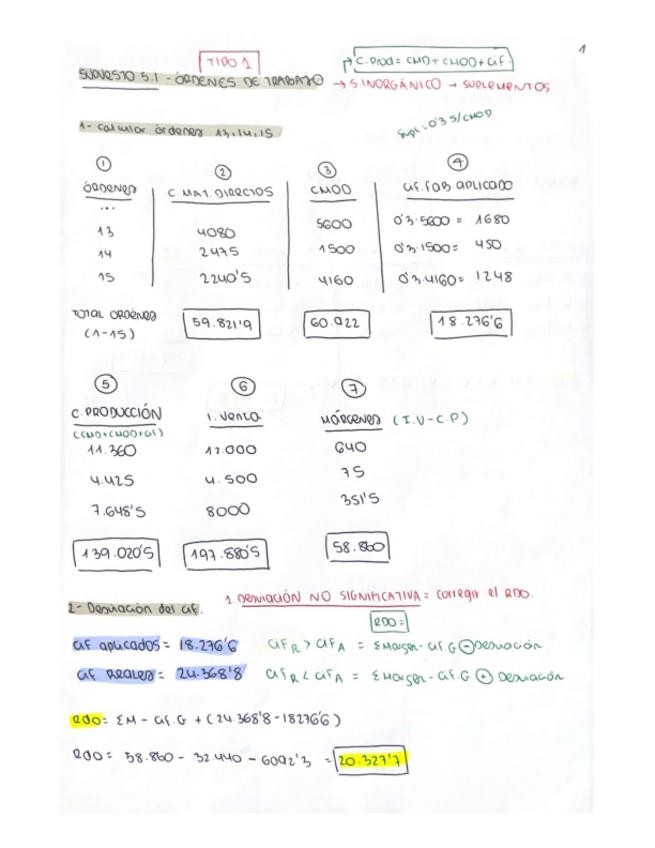 1
TIPO 1
C. Prod = CMD + CMOD + CIF
SUPUESTO 5.1 - ÓRDENES DE TRABAJO → S. INORGÁNICO → SUPLEMENTOS
Supl = 0'3 S/CMOD
1- Calcular órdenes 13,14,15
① ② ③ ④
ÓRDENES C. MAT. DIRECTOS CMOD CIF. FOB APLICADO
...
13 4080 5600 0'3·5600 = 1680
14 2475 1500 0'3·1500 = 450
15 2240'5 4160 0'3·4160 = 1248
TOTAL ORDENES 59.821'9 60.922 18.276'6
(1-15)
⑤ ⑥ ⑦
C. PRODUCCIÓN I. Venta MÁRGENES (I.V - C.P)
(CMD+CMOD+CIF)
11.360 12.000 640
4.425 4.500 75
7.648'5 8000 351'5
139.020'5 197.880'5 58.860
1. DESVIACIÓN NO SIGNIFICATIVA = corregir el RDO.
2- Desviación del CIF.
RDO =
CIF aplicados = 18.276'6 CIF R > CIF A = ΣMargen - CIF.G ⊖ Desviación
CIF Reales = 24.368'8 CIF R < CIF A = ΣMargen - CIF.G ⊕ Desviación
Rdo = ΣM - CIF.G + (24.368'8 - 18276'6)
Rdo = 58.860 - 32.440 - 6092'3 = 20.327'7